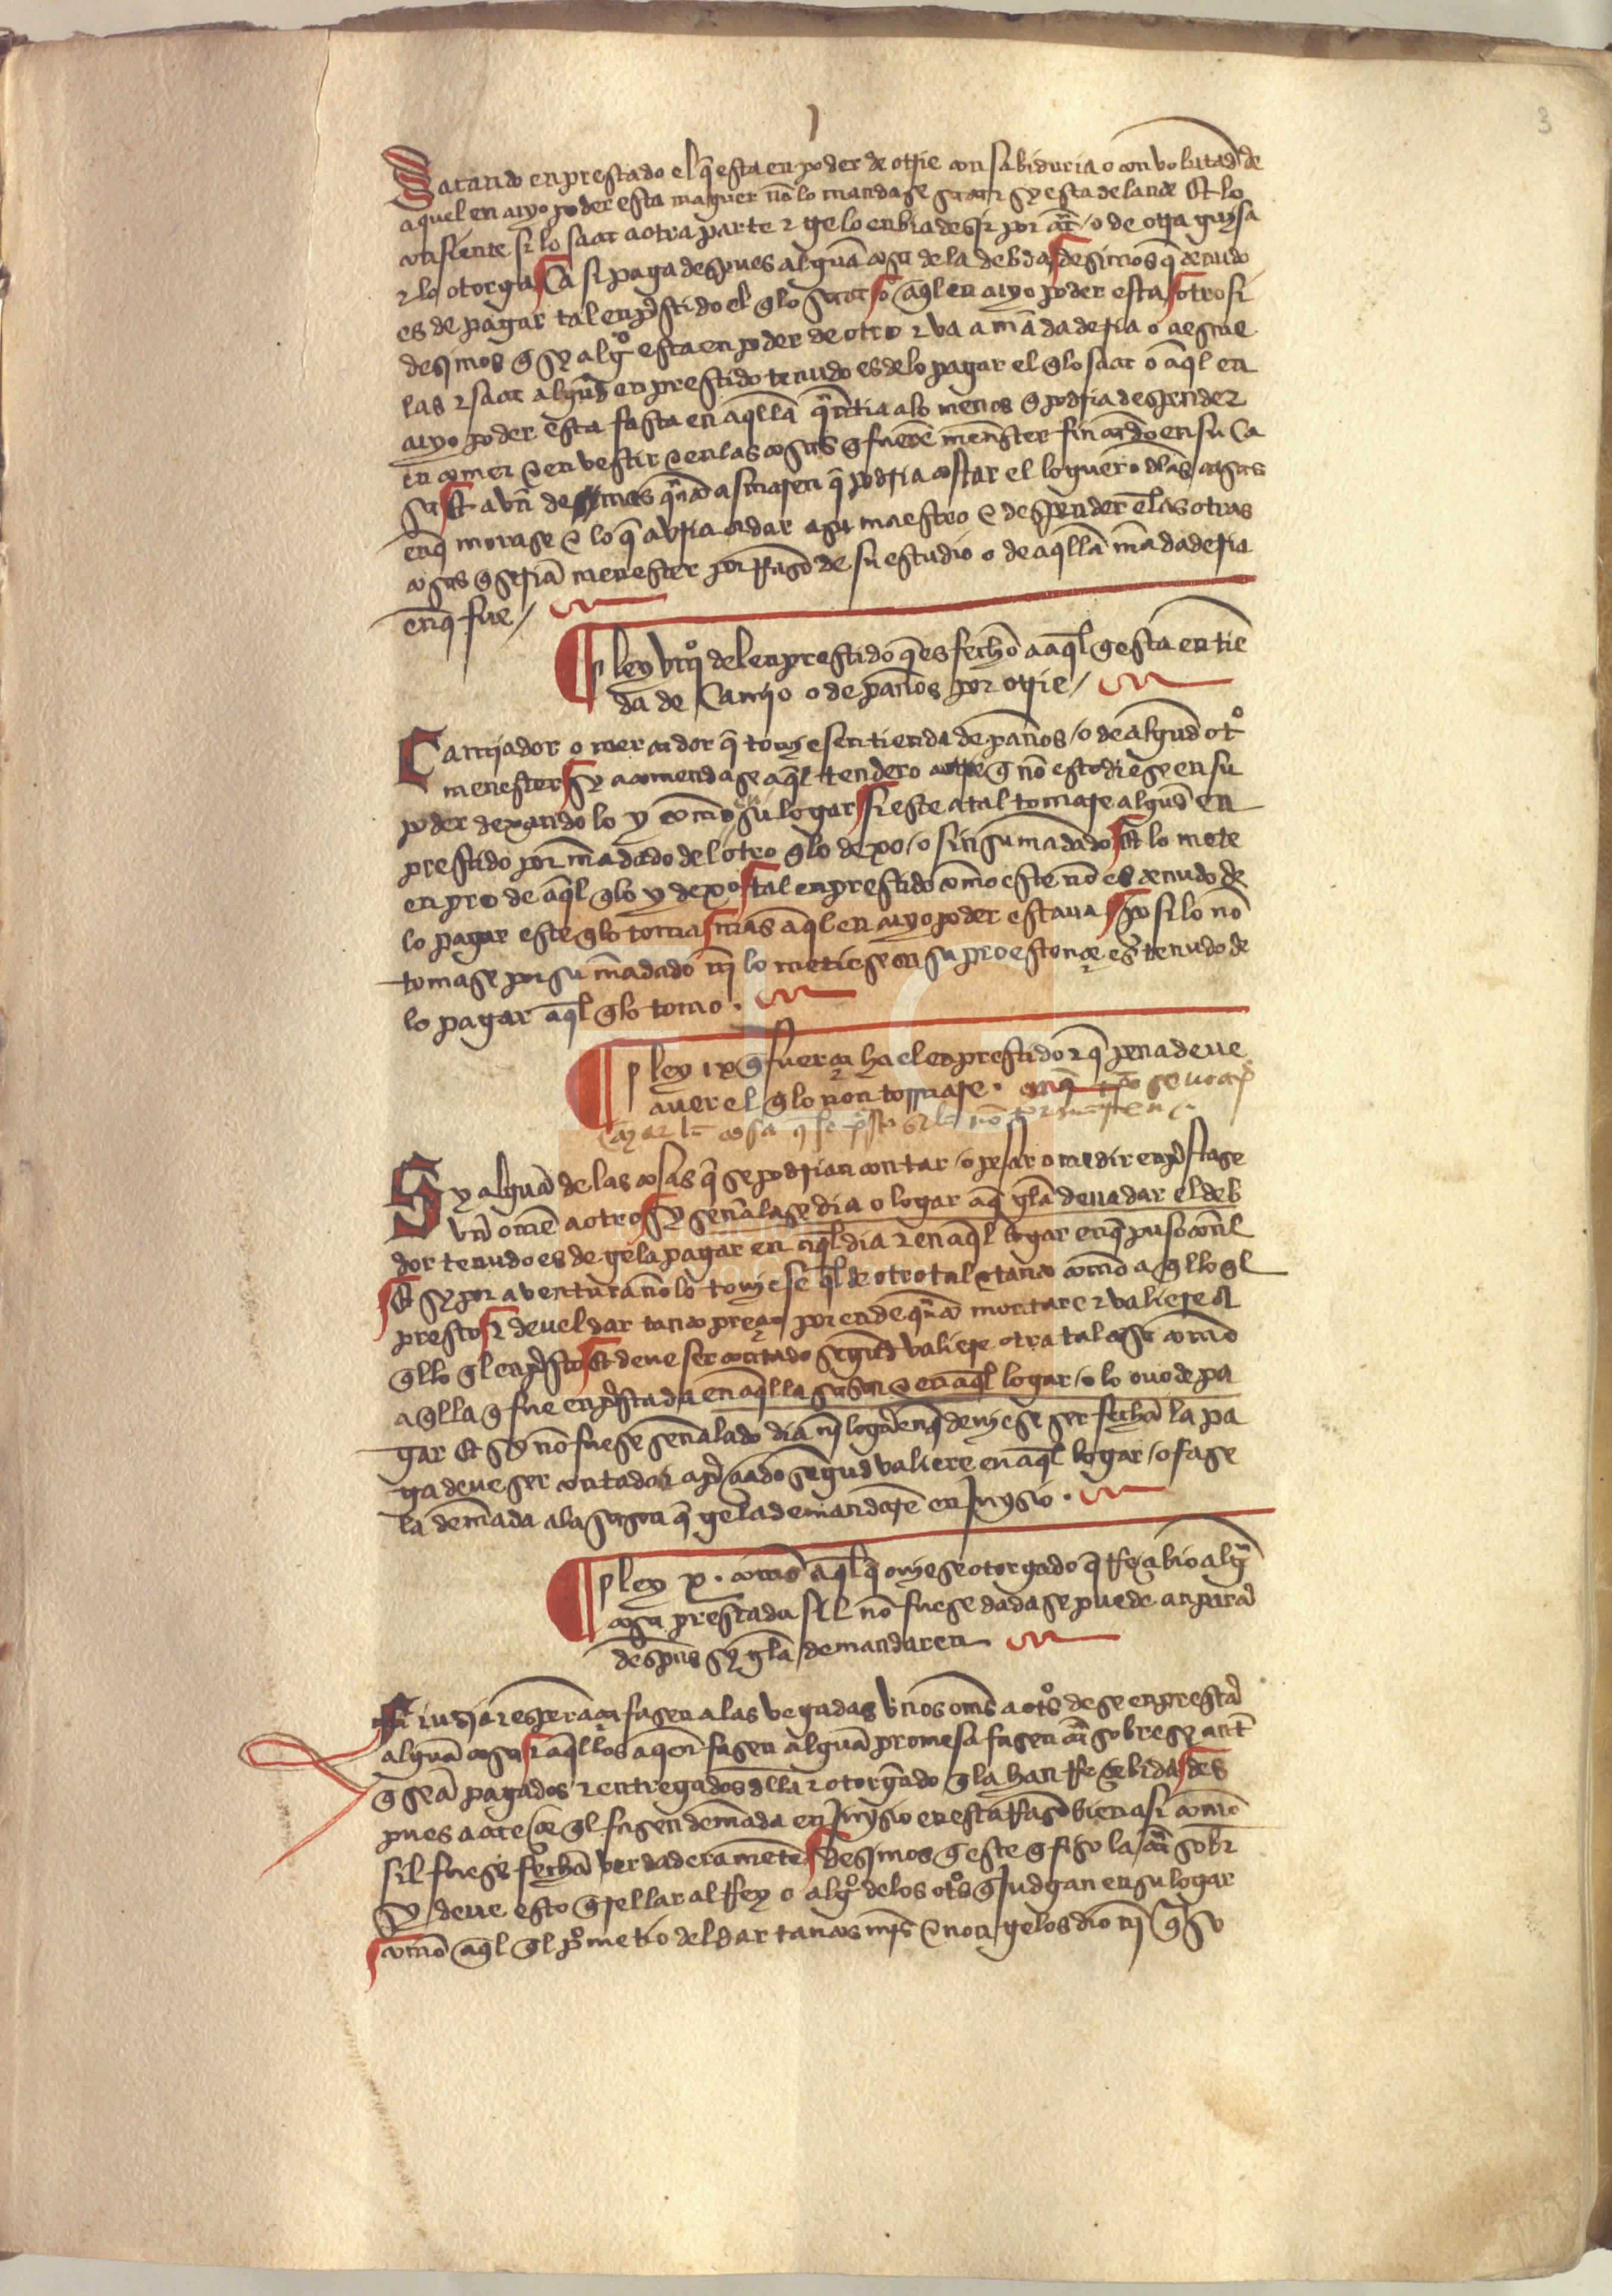 3
Sacando enprestado el q̃ esta en poder de otrie con sabiduria o con volũtad de
aquel en cuyo poder esta maguer nõ lo mandase sacar sy esta delante Et lo
consiente si lo saca a otra parte τ gelo enbia desir por carta / o de otra guysa
τ lo otorga Ca si paga despues algũa cosa de la debda desimos q̃ tenudo
es de pagar tal enp̃stido el q̃ lo saca o aq̃l en cuyo poder esta otrosi
desimos q̃ sy algº esta en poder de otro τ va a mãdaderia o a escue
las τ saca algũd enprestido tenudo es de lo pagar el q̃ lo saca o aq̃l en
cuyo poder esta fasta en aq̃lla q̃ntia a lo menos q̃ podria despender
en comer τ en vestir τ en las cosas q̃ fuerẽ menester fincãdo en su ca
sa Et avn desimos q̃nto asmasen q̃ podria costar el loguero d̃las casas
enq̃ morase τ lo q̃ avria a dar a su maestro τ despender en las otras
cosas q̃ seriã menester por rrasõ de su estudio o de aq̃lla mãdaderia
enq̃ fue /
ley viijº del enprestido q̃ es fecho a aq̃l q̃ esta en tie
da de camjo o de paños por otrie /
Camjador o mercador q̃ touiese tienda de paños / o de algũd otº
menester sy acomendase aq̃l tendero a otrie q̃ nõ estodiese en su
poder dexandolo y com̃o en su logar si este atal tomase algũd en
prestido por mãdado del otro q̃ lo dexo / o sin su mãdado Et lo mete
en pro de aq̃l q̃ lo y dexo tal enprestido com̃o este nõ es tenudo de
lo pagar este q̃ lo toma mas aq̃l en cuyo poder estaua p̃o si lo nõ
tomase por su mãdado nj̃ lo metiese en su pro estonçe es tenudo de
lo pagar aq̃l q̃ lo tomo .
ley ix q̃ fuerça ha el enprestido τ q̃ pena deue
auer el q̃ lo non tornare .
Sy algũa de las cosas q̃ se podrian contar / o pesar o medir enp̃stase
vñ omẽ a otro sy señalase dia o logar aq̃ gela deua dar el deb
dor tenudo es de gela pagar en aq̃l dia τ en aq̃l logar enq̃ puso con el
Et sy por auentura nõ lo touiese q̃l de otro tal τ tanto com̃o aq̃llo q̃l
presto τ deuel dar tanto preçio por ende q̃nto montare τ valiere a
q̃llo q̃l enp̃sto Et deue ser contado segũd valiere otra tal cosa com̃o
aq̃lla q̃ fue enp̃stada en aq̃lla sason τ en aq̃l logar / o lo ouo de pa
gar Et sy nõ fuese señalado dia nj̃ logar enq̃ deujese ser fecha la pa
ga deue ser contado τ ap̃ciado segũd valiere en aq̃l logar / o fase
la demãda a la sason q̃ gela demandarẽ en Juysio .
ley x . com̃o aq̃l q̃ oujese otorgado q̃ rreçibio algũa
cosa prestada sil nõ fuese dada se puede anparar
despues sy gela demandaren
Fiusia τ esperança fasen a las vegadas vnos om̃s a otºs de se enprestar
algũa cosa τ aq̃llos a quien fasen algũa promesa fasen carta sobre sy ant̃
q̃ seã pagados τ entregados d̃lla τ otorgãdo q̃ la han rreçebida des
pues acaeçe q̃l fasen demãda en Juysio en esta rrasõ bien asi com̃o
sil fuese fecha verdaderamẽte desjmos q̃ este q̃ fiso la carta sobr
sy deue esto q̃rellar al rrey o algº de los otºs q̃ Judgan en su logar
com̃o aq̃l q̃l p̃metio del dar tantos mr̃s τ non gelos dio nj̃ q̃so